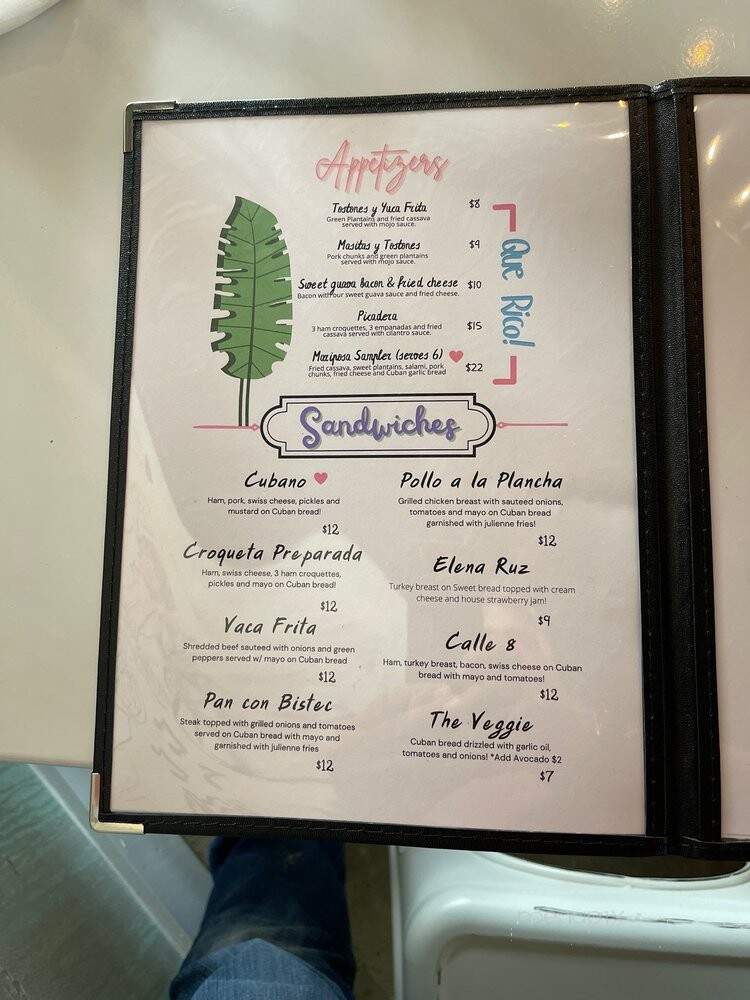 Appetizers
Tostones y Yuca Frita $8
Green Plantains and fried cassava
served with mojo sauce.
Masitas y Tostones $9
Pork chunks and green plantains
served with mojo sauce.
Sweet guava bacon & fried cheese $10
Bacon with our sweet guava sauce and fried cheese.
Picadera
3 ham croquettes, 3 empanadas and fried $15
cassava served with cilantro sauce.
Mariposa Sampler (serves 6)
Fried cassava, sweet plantains, salami, pork $22
chunks, fried cheese and Cuban garlic bread
Que Rico!
Sandwiches
Cubano
Ham, pork, swiss cheese, pickles and
mustard on Cuban bread!
$12
Croqueta Preparada
Ham, swiss cheese, 3 ham croquettes,
pickles and mayo on Cuban bread!
$12
Vaca Frita
Shredded beef sauteed with onions and green
peppers served w/ mayo on Cuban bread
$12
Pan con Bistec
Steak topped with grilled onions and tomatoes
served on Cuban bread with mayo and
garnished with julienne fries
$12
Pollo a la Plancha
Grilled chicken breast with sauteed onions,
tomatoes and mayo on Cuban bread
garnished with julienne fries!
$12
Elena Ruz
Turkey breast on Sweet bread topped with cream
cheese and house strawberry jam!
$9
Calle 8
Ham, turkey breast, bacon, swiss cheese on Cuban
bread with mayo and tomatoes!
$12
The Veggie
Cuban bread drizzled with garlic oil,
tomatoes and onions! *Add Avocado $2
$7